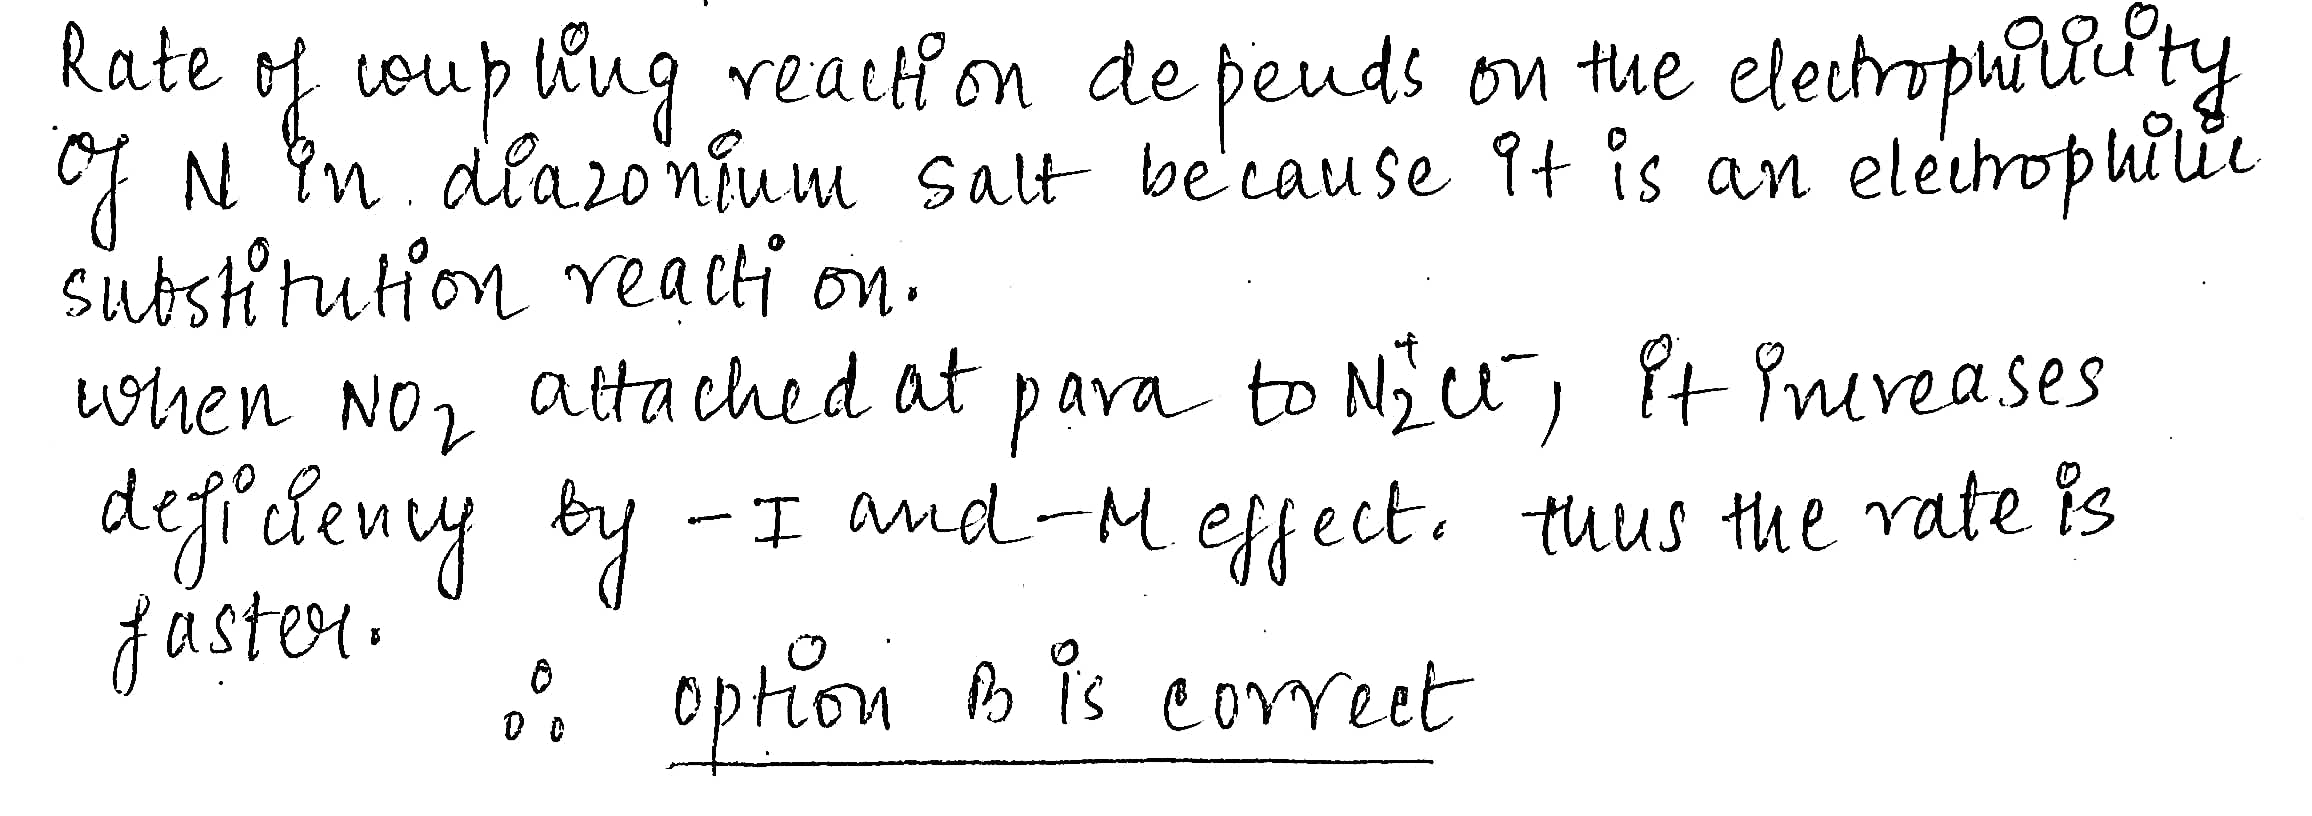 Rate of coupling reaction depends on the electrophilicity
of N in diazonium salt because it is an electrophilic
substitution reaction.
when NO₂ attached at para to N₂⁺Cl⁻, it increases
deficiency by -I and -M effect. thus the rate is
faster.
∴ option B is correct